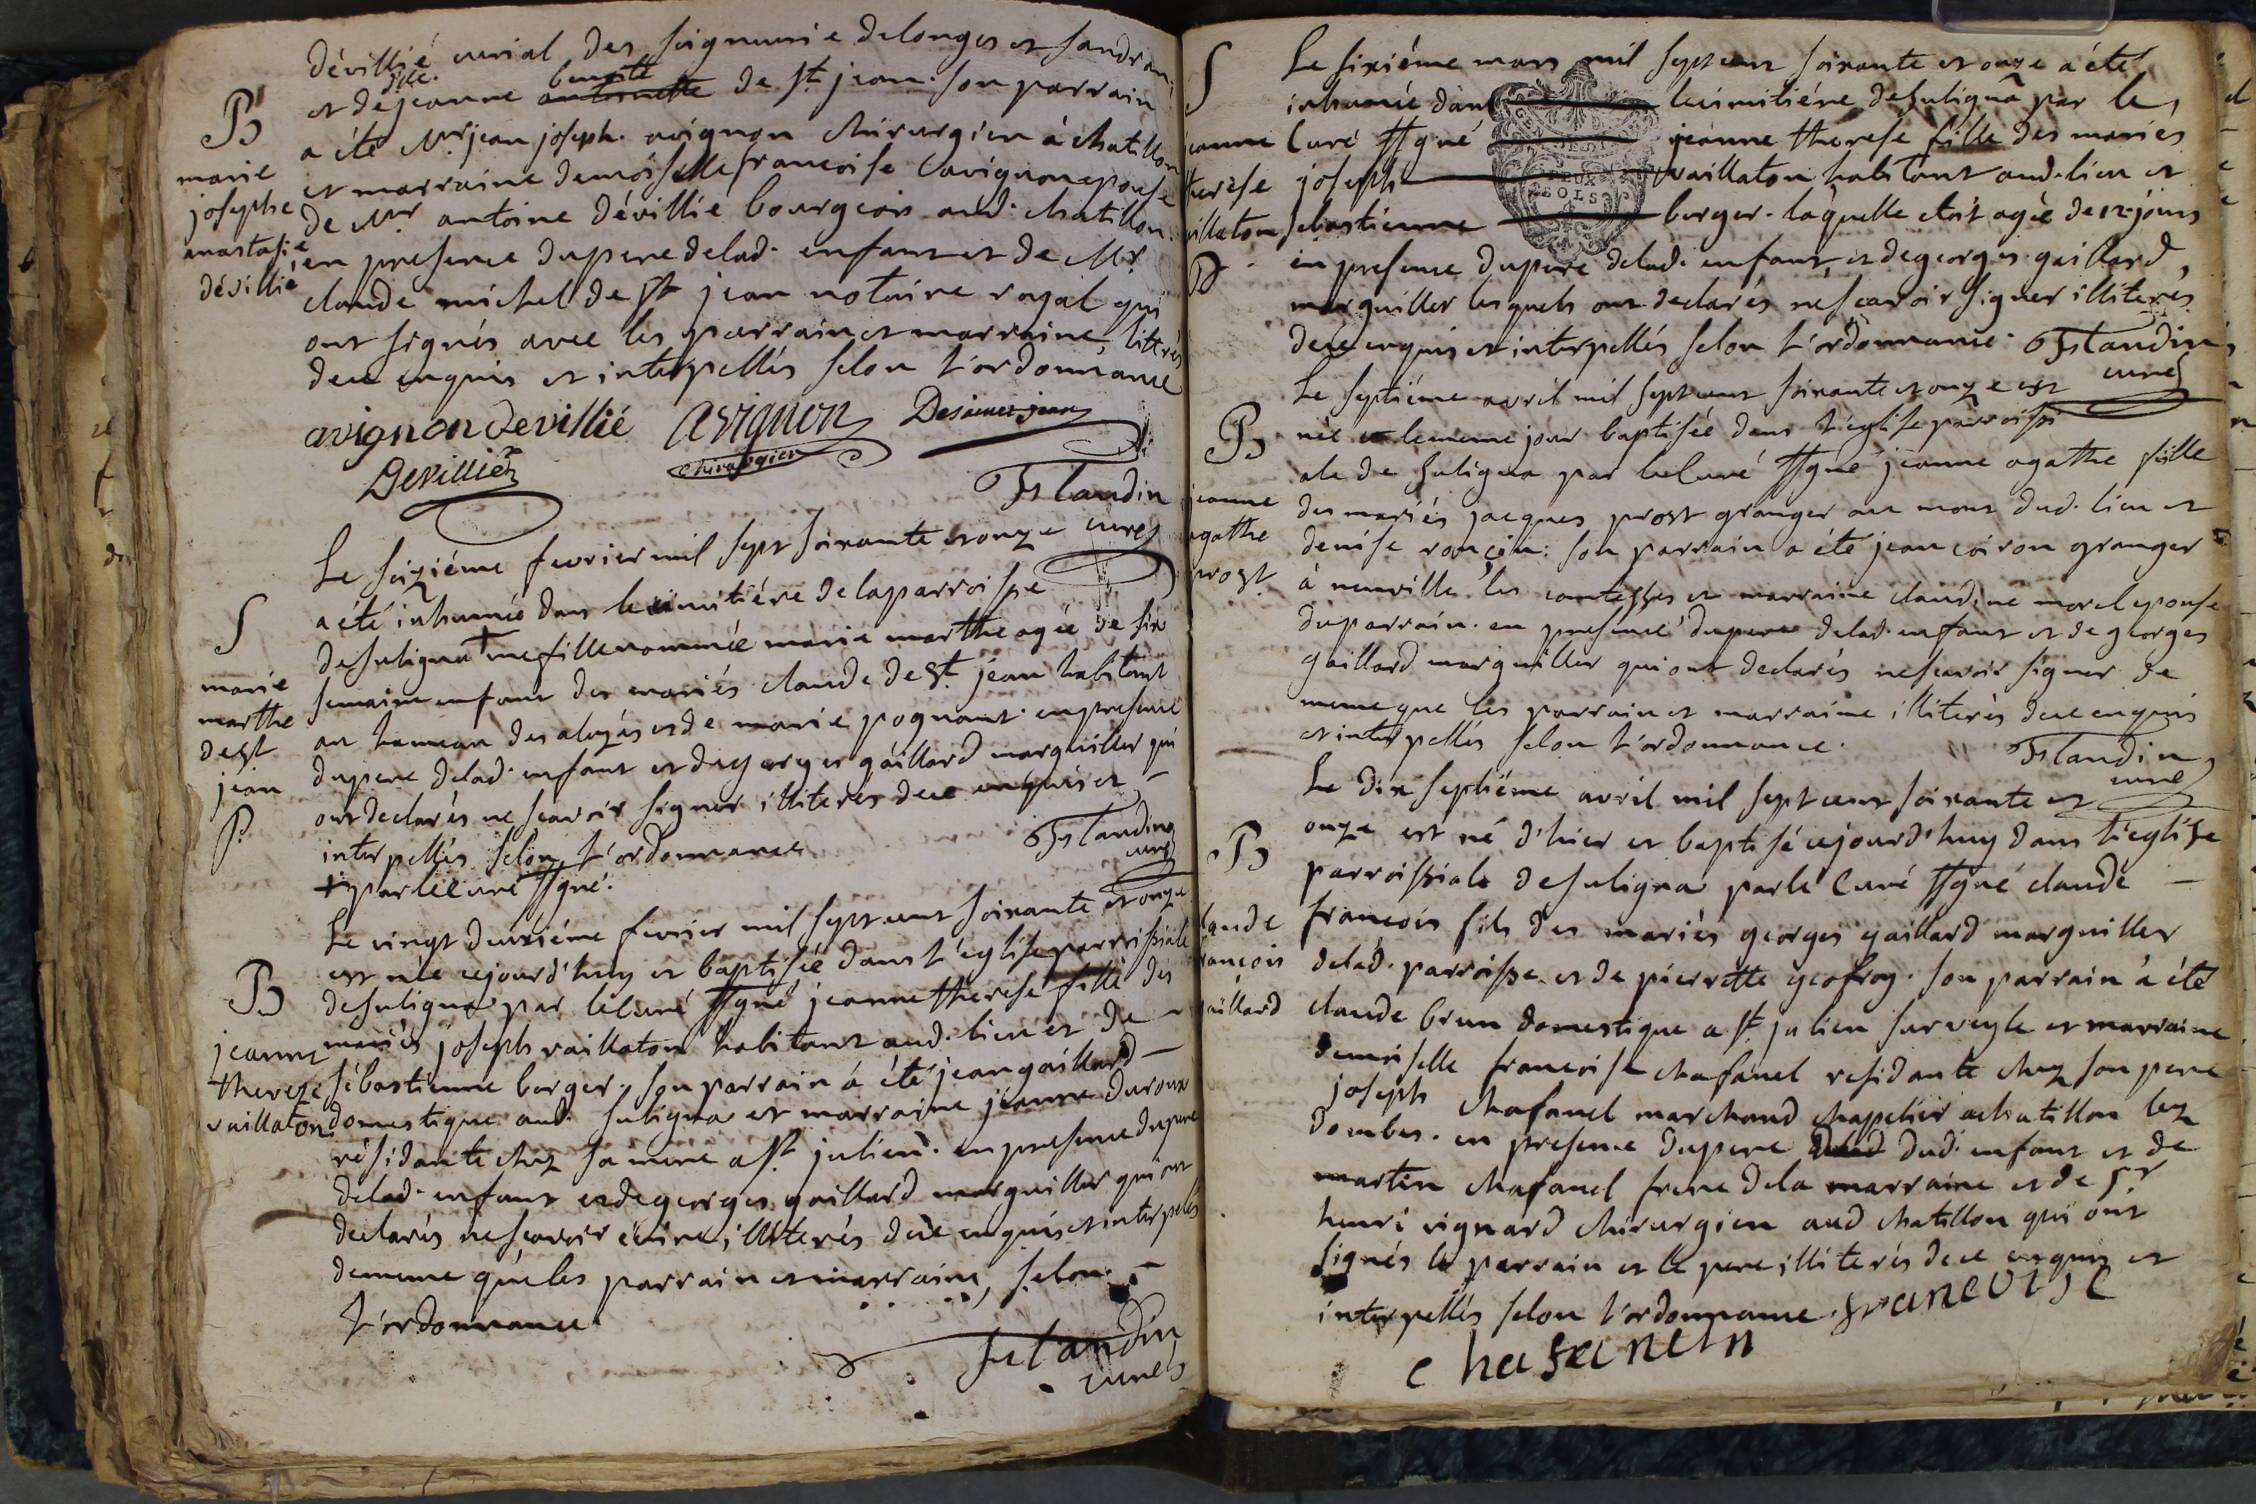 dévillié curial des seigneurie delonges et sandran
et de dlle jeanne antoinette benoite de st jean. son parrain
a été Mr jean joseph avignon chirurgien à chatillon
et marraine demoiselle francoise avignon epouse
de Mr antoine dévillié bourgeois aud. chatillon
en presence dupere delad. enfant et de Mr
claude michel de st jean notaire royal qui
ont signés avec les parrain et marraine, litterés
dece enquis et interpellés selon l'ordonnance
B
marie
josephe
anastasie
dévillié
avignon devillié avignon Desaint jean
chirurgien
Devillié
Flandin
curé
Le seiziéme fevrier mil sept soixante et onze
a été inhumée dans le cimitiére de laparroisse
desuligna + une fille nommée marie marthe agée de six
semaine enfant des mariés claude de st. jean habitant
au hameau des aluzés et de marie pognant. en presence
dupere delad. enfant et de georges gaillard marguiller qui
ont declarés ne scavoir signer illiterés dece enquis et
interpellés selon l'ordonnance
+ par le curé ssgné.
Flandin
curé
S
marie
marthe
dest
jean
P.
Le vingt deuxiéme fevrier mil sept cent soixante et onze
est née cejourd'huy et baptisée dans l'eglise parroissiale
desuligna par lecuré ssgné jeanne therese fille des
mariés joseph vaillaton habitant aud. lieu et de
sébastienne borger. son parrain a été jean gaillard
domestique aud. suligna et marraine jeanne duroux
résidante chez sa mere a st. julien. en presence dupere
delad. enfant et de georges gaillard marguiller qui ont
declarés ne scavoir écrire illiterés dece enquis et interpellés
dememe que les parrain et marraine, selon
l'ordonnance.
Flandin
curé
B
jeanne
thereze
vaillaton
Le sixiéme mars mil sept cent soixante et onze a été
inhumée dans le cimitiére desuligna par le
Curé ssgné jeanne therese fille des mariés
joseph vaillaton habitant aud. lieu et
sebastienne borger. laquelle étoit agée de 12 jours
en presence dupere delad. enfant, et degeorges gaillard,
marguiller lesquels ont declarés ne scavoir signer illiterés
dece enquis et interpellés selon l'ordonnance. Flandin
curé
S
jeanne
therese
villaton
Le septiéme avril mil sept cent soixante et onze est
née et lememe jour baptisée dans l'eglise parroissi
ale de suligna par le Curé ssgné jeanne agathe fille
des mariés jacques prost granger au mont dud. lieu et
denise ronçin: son parrain a été jean coiron granger
à neuville les comtesses et marraine claudine morel epouse
duparrain. en presence dupere delad. enfant et de georges
gaillard marguiller qui ont declarés ne scavoir signer de
meme que les parrain et marraine illiterés dece enquis
et interpellés selon l'ordonnance.
Flandin
curé
B
jeanne
agathe
prost
Le dix septiéme avril mil sept cent soixante et
onze est né d'hier et baptisé cejourd'huy dans l'eglise
parroissiale desuligna parle Curé ssgné claude
francois fils des mariés georges gaillard marguiller
delad. parroisse et de pierrette geofroy. son parrain a été
claude brun domestique a st. julien sur veyle et marraine
demoiselle francoise chafanel residante chez son pere
joseph chafanel marchand chapelier a chatillon lez
dombes. en presence dupere dud. enfant et de
martin chafanel frere dela marraine et de Sr
henri vignard chirurgien aud chatillon qui ont
signés le parrain et le pere illiterés dece enquis et
interpellés selon l'ordonnance. francoise
chafaneln
B
claude
francois
gaillard